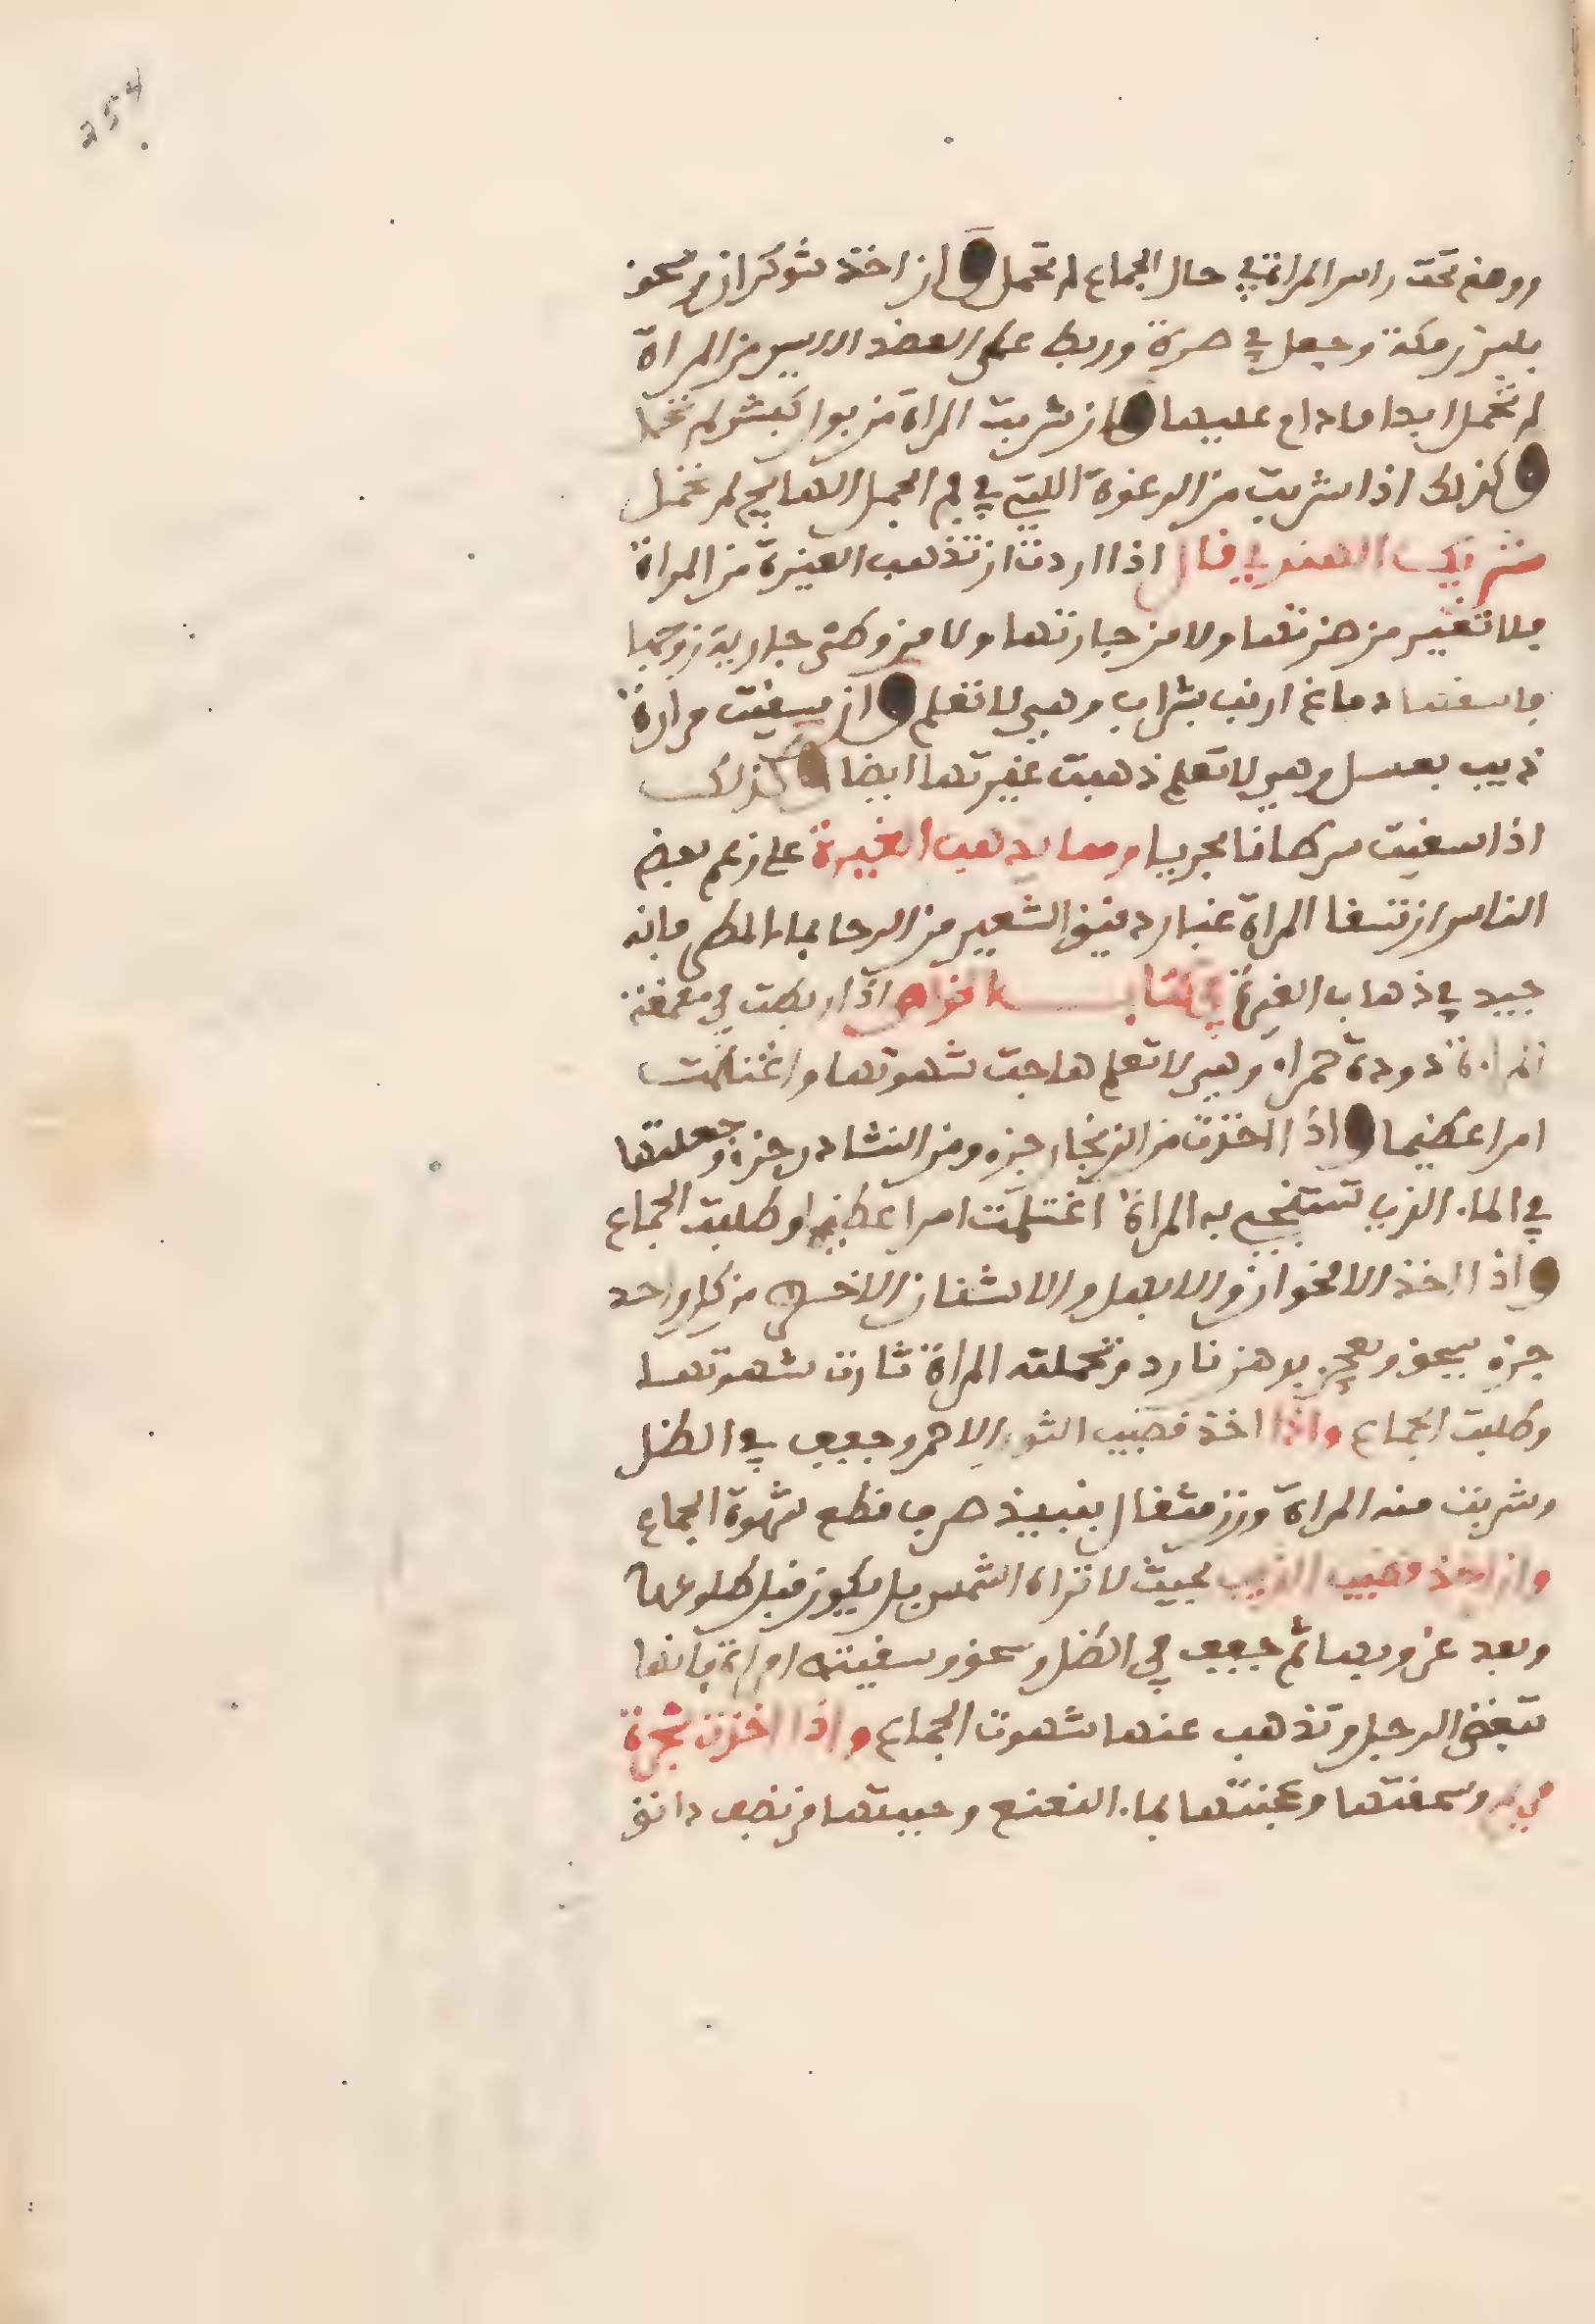 254
ووضع تحت راس المراة في حال الجماع لم تحمل وان اخذ شوكران وسحق
بلبن رمكة وجعل في صرة وربط على العضد الايسر من المراة
لم تحمل ابدا ما دام عليها وان شربت المراة من بول كبش لم تحمل
وكذلك اذا شربت من الرغوة اللتي في فم الجمل الهايج لم تحمل
الهندي قال اذا اردت ان تذهب الغيرة من المراة
فلا تغير من ضرتها ولا من جارتها ولا من وطئ جارية زوجها
فاسقها دماغ ارنب بشراب وهي لا تعلم وان سقيت مرارة
ذيب بعسل وهي لا تعلم ذهبت غيرتها ايضا وكذلك
اذا سقيت سرطانا بحريا ومما يذهب الغيرة على زعم بعض
الناس ان تسقا المراة غبار دقيق الشعير من الرحا بماء المطر فانه
جيد في ذهاب الغيرة في كتاب الخواص اذا ربطت في مقنعة
المراة دودة حمراء وهي لا تعلم هاجت شهوتها واغتلمت
امرا عظيما واذا اخذت من الزنجار جزء ومن النشادر جزء وجعلتها
في الماء الذي تستنجي به المراة اغتلمت امرا عظيما وطلبت الجماع
واذا اخذ الاقحوان والابهل والاشنان الاخضر من كل واحد
جزء يسحق ويعجن بدهن نارد وتحملته المراة ثارت شهوتها
وطلبت الجماع واذا اخذ قضيب الثور الاحمر وجفف في الظل
وشربت منه المراة وزن مثقال بنبيذ صرف قطع شهوة الجماع
وان اخذ قضيب الذيب بحيث لا تراه الشمس بل يكون قبل طلوعها
وبعد غروبها ثم جفف في الظل وسحق وسقيته امراة فانها
تبغض الرجل وتذهب عنها شهوت الجماع واذا اخذت شجرة
مريم وسحقتها وعجنتها بماء النعنع وحببتها من نصف دانق